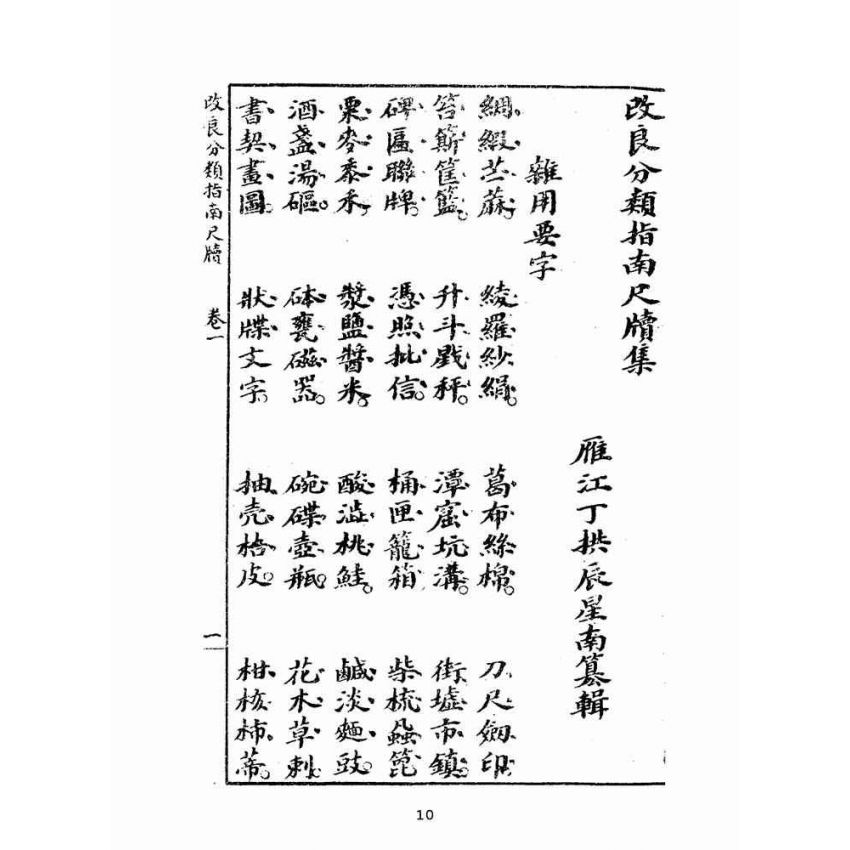 改良分類指南尺牘集
雁江丁拱辰星南纂輯
雜用要字
綢緞苎蔴 綾羅紗絹 葛布絲棉 刀尺劔印
笞簛筐籃 升斗戥秤 潭窟坑溝 街墟市鎮
碑匾聯牌 憑照批信 桶匣籠箱 柴梳蝨篦
粟麥黍禾 漿鹽醬米 酸澁桃鮭 鹹淡麵豉
酒盞湯甌 砵甕磁器 碗碟壺瓶 花木草刺
書契畫圖 狀牒文字 抽壳拾皮 柑核柿蒂
改良分類指南尺牘 卷一 一
10